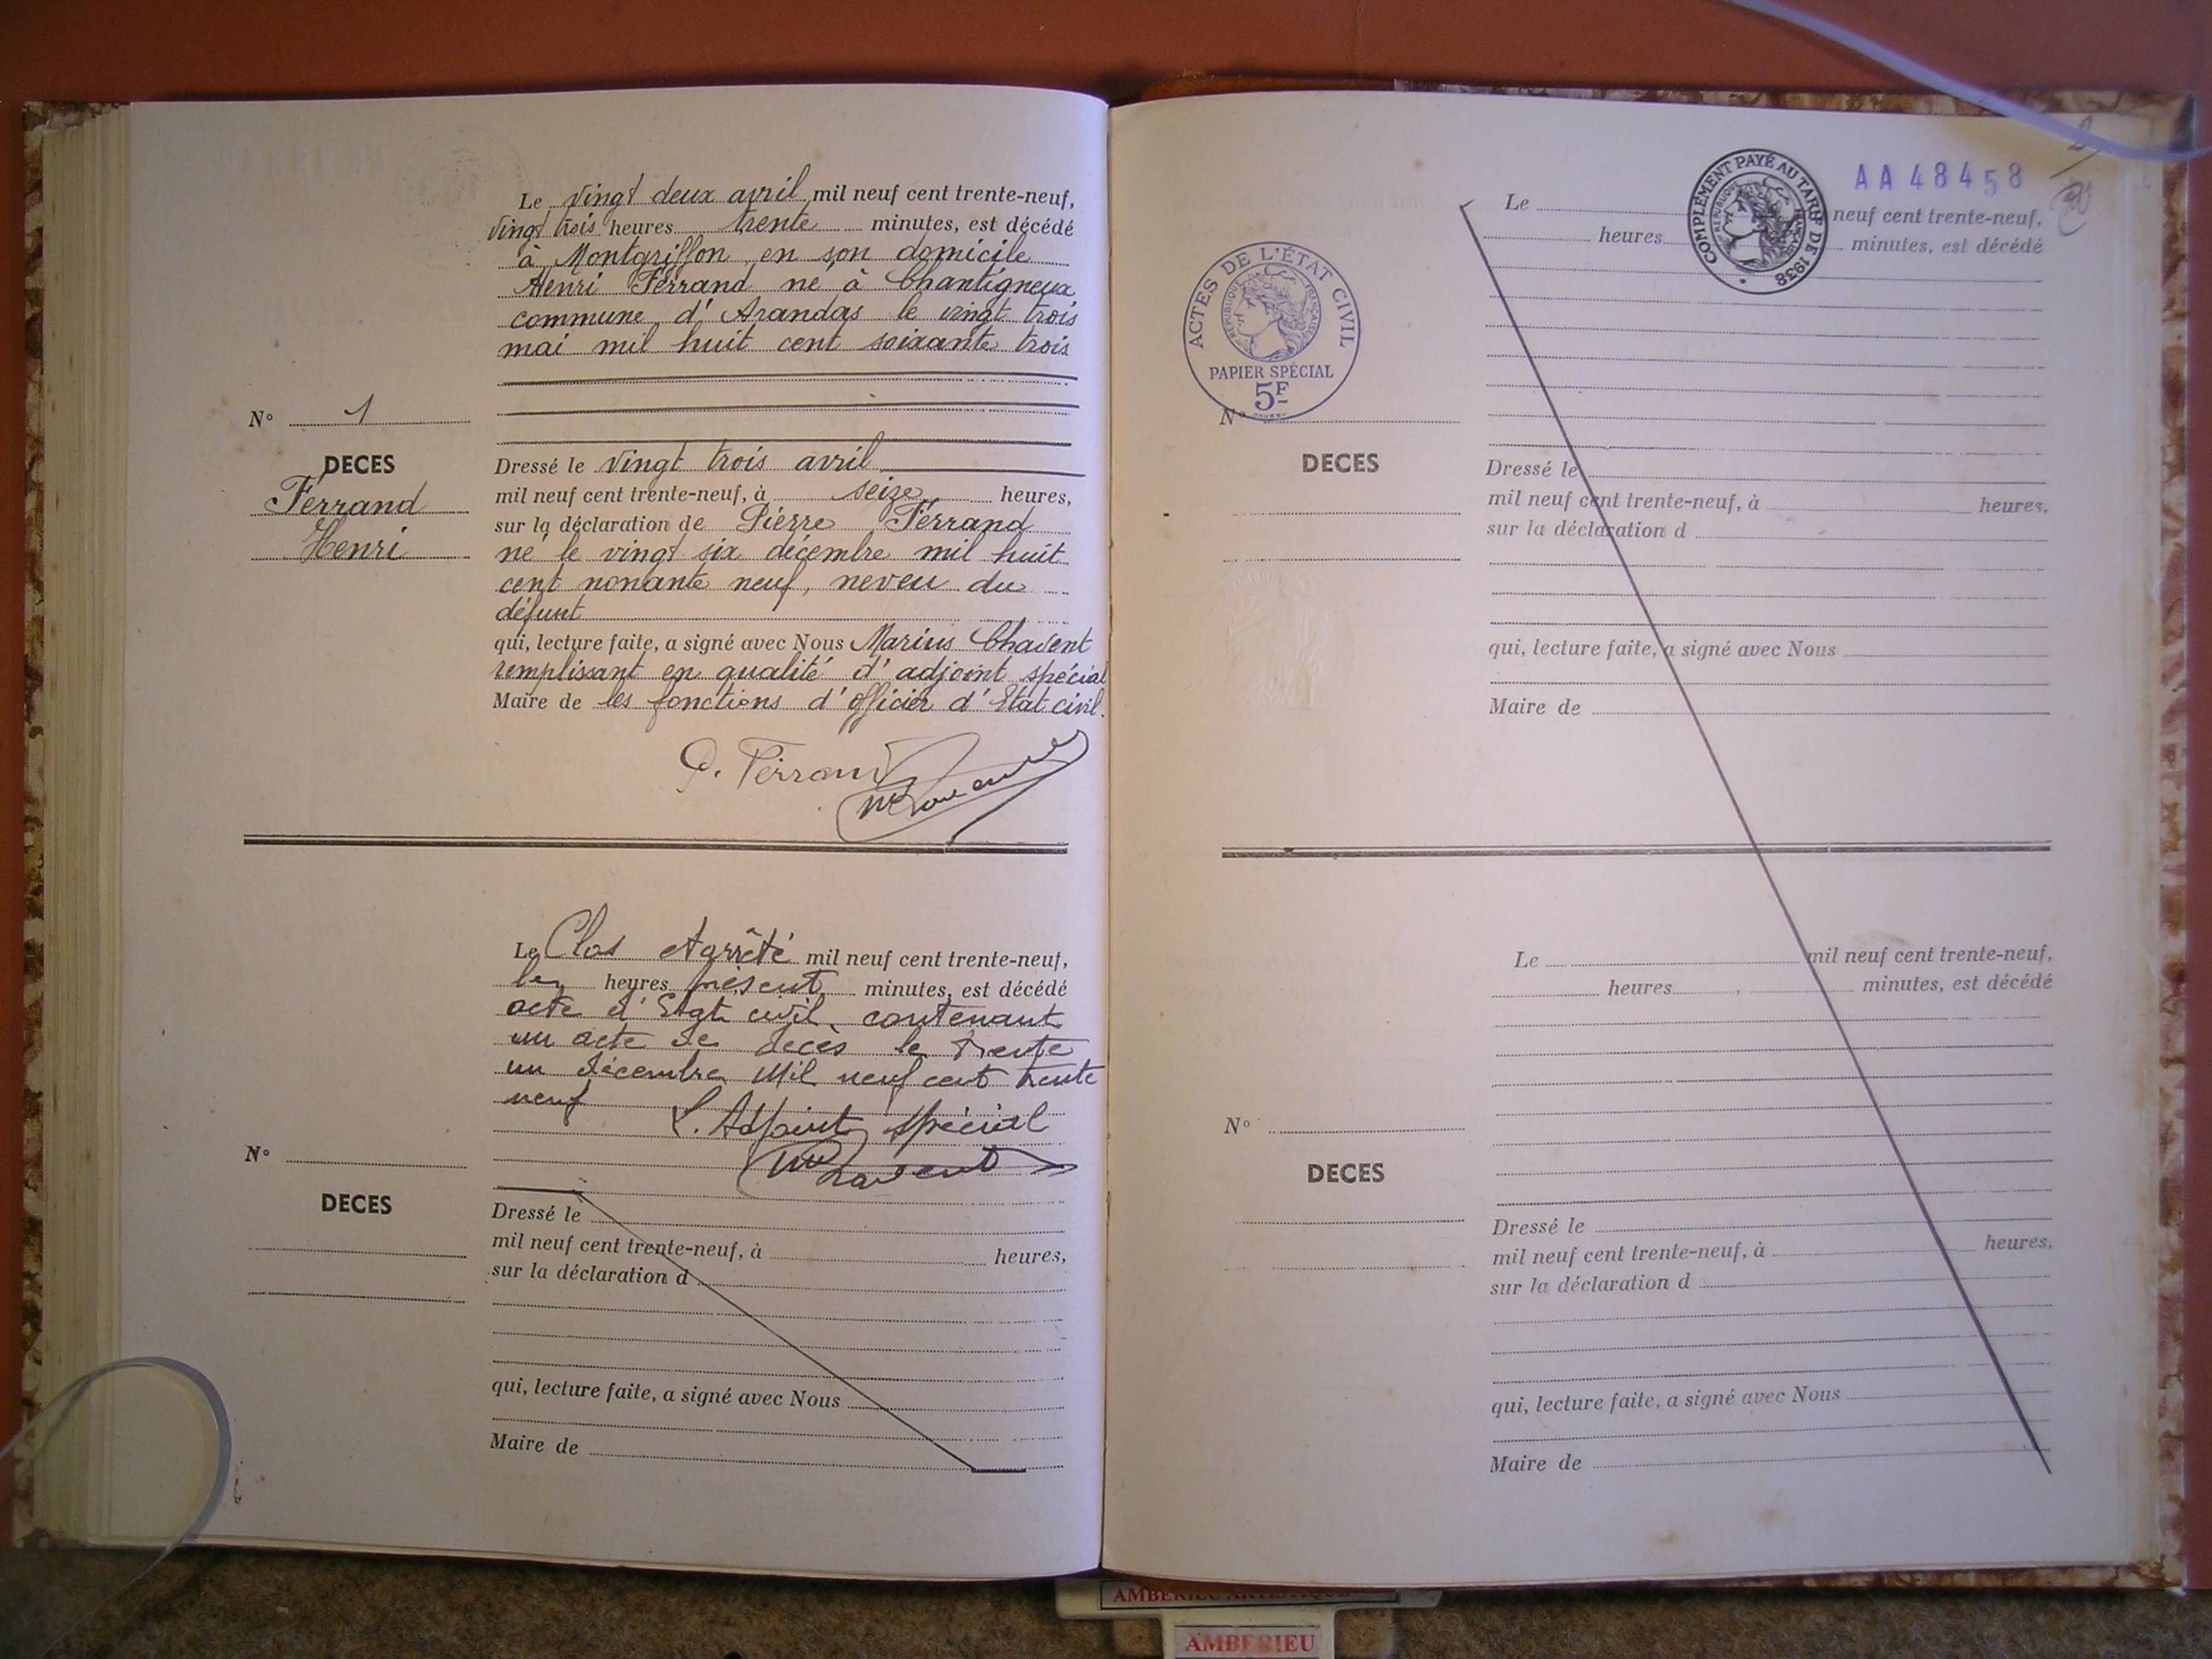 Le vingt deux avril mil neuf cent trente-neuf,
vingt trois heures trente minutes, est décédé
à Montgriffon en son domicile
Henri Ferrand né à Chantigneux
commune d'Arandas le vingt trois
mai mil huit cent soixante trois
N° 1
DECES
Ferrand
Henri
Dressé le vingt trois avril
mil neuf cent trente-neuf, à seize heures,
sur la déclaration de Pierre Ferrand
né le vingt six décembre mil huit
cent nonante neuf, neveu du
défunt
qui, lecture faite, a signé avec Nous Marius Chavent
remplissant en qualité d'adjoint spécial
Maire de les fonctions d'officier d'Etat civil.
P. Ferrand
Le Clos et arrêté mil neuf cent trente-neuf,
le heures présent minutes, est décédé
acte d'Etat civil, contenant
un acte de décès le trente
un décembre Mil neuf cent trente
neuf
L'Adjoint spécial
Chavent
N°
DECES
Dressé le
mil neuf cent trente-neuf, à heures,
sur la déclaration d
qui, lecture faite, a signé avec Nous
Maire de
2
AA 48458
COMPLÉMENT PAYÉ AU TARIF DE 1938
RÉPUBLIQUE FRANÇAISE
Le neuf cent trente-neuf,
heures minutes, est décédé
ACTES DE L'ÉTAT CIVIL
RÉPUBLIQUE FRANÇAISE
PAPIER SPÉCIAL
5F
N°
DECES
Dressé le
mil neuf cent trente-neuf, à heures,
sur la déclaration d
qui, lecture faite, a signé avec Nous
Maire de
Le mil neuf cent trente-neuf,
heures minutes, est décédé
N°
DECES
Dressé le
mil neuf cent trente-neuf, à heures,
sur la déclaration d
qui, lecture faite, a signé avec Nous
Maire de
AMBERIEU
AMBERIEU